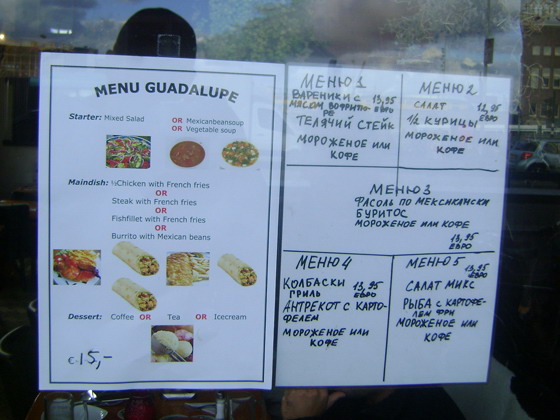 MENU GUADALUPE
Starter: Mixed Salad
OR Mexicanbeansoup
OR Vegetable soup
Maindish: ½Chicken with French fries
OR
Steak with French fries
OR
Fishfillet with French fries
OR
Burrito with Mexican beans
Dessert: Coffee OR Tea OR Icecream
€ 15,-
МЕНЮ 1
ВАРЕНИКИ С 13,95
МЯСОМ ВО ФРИТЮ- ЕВРО
РЕ
ТЕЛЯЧИЙ СТЕЙК
МОРОЖЕНОЕ ИЛИ
КОФЕ
МЕНЮ 2
САЛАТ 12,95
½ КУРИЦЫ ЕВРО
МОРОЖЕНОЕ ИЛИ
КОФЕ
МЕНЮ 3
ФАСОЛЬ ПО МЕКСИКАНСКИ
БУРИТОС
МОРОЖЕНОЕ ИЛИ КОФЕ
13,95
ЕВРО
МЕНЮ 4
КОЛБАСКИ 13,95
ГРИЛЬ ЕВРО
АНТРЕКОТ С КАРТО-
ФЕЛЕМ
МОРОЖЕНОЕ ИЛИ
КОФЕ
МЕНЮ 5
13,95
ЕВРО
САЛАТ МИКС
РЫБА С КАРТОФЕ-
ЛЕМ ФРИ
МОРОЖЕНОЕ ИЛИ
КОФЕ